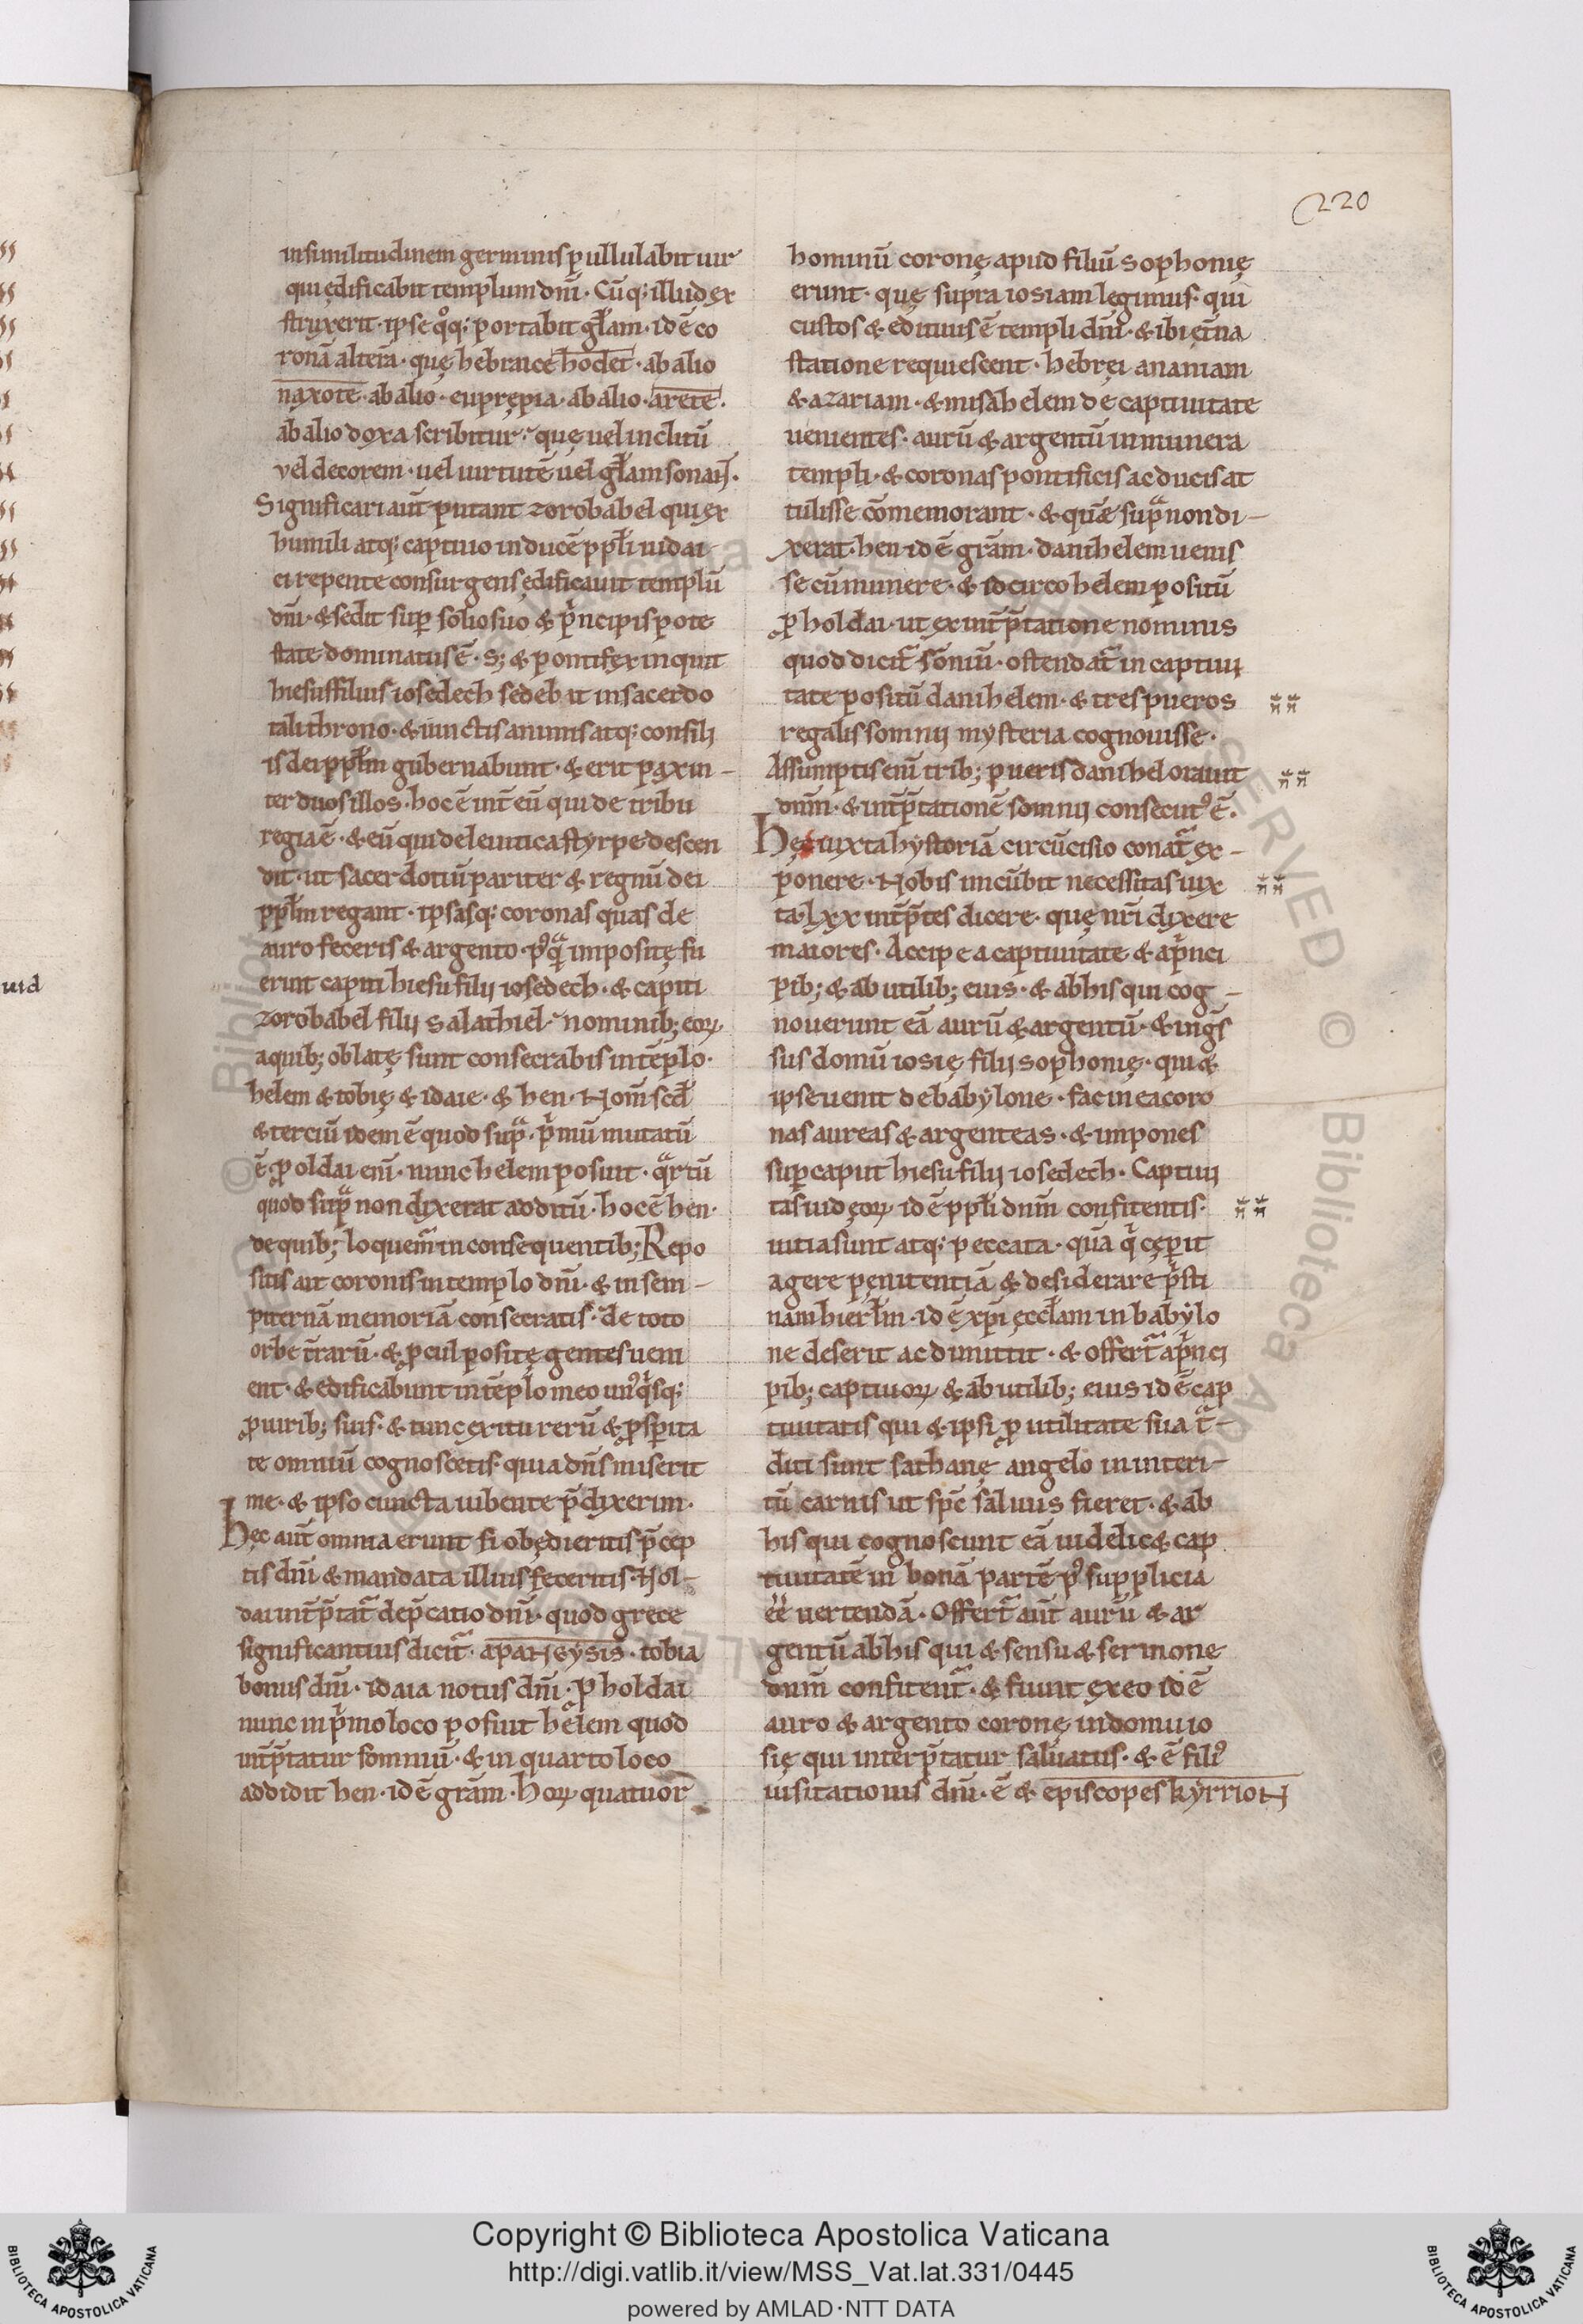 220
in similitudinem germinis pullulabit uir
qui ędificabit templum dnī · Cūq; illud ex
struxerit · ipse qͦq; portabit gl̄am · id ē co
ronā alterā · quę hebraice hodet · ab alio
naxote · ab alio · euprępia · ab alio · arete ·
ab alio doxa scribitur · quę uel inclitū
vel decorem · uel uirtutē uel gl̄am sonat
Significari aut̄ putant zorobabel qui ex
humili atq; captiuo in ducē ppl̄i iudai
ci repente consurgens ędificauit templū
dnī · & sedit suꝑ solio suo & pͥncipis pote
state dominatus ē · S; & pontifex inquit
hiesus filius iosedech sedebit in sacerdo
tali throno · & iunctis animis atq; consilii
is dei ppl̄m gubernabunt · & erit pax in –
ter duos illos · hoc ē int̄ eū qui de tribu
regia ē · & eū qui de leuitica styrpe descen
dit · ut sacerdotiū pariter & regnū dei
ppl̄m regant · ipsasq; coronas quas de
auro feceris & argento · pꝰqͣ impositę fu
erint capiti hiesu filij iosedech · & capiti
zorobabel filij salathiel · nominib; eoꝝ
a quib; oblatę sunt consecrabis in tēplo ·
helem & tobię & idaie · & hen · Nom̄ scd̄
& terciū idem ē quod supͣ · pͥmū mutatū
ē ꝓ oldai eni̅ · nunc helem posuit · qͣrtū
quod supͣ non dixerat additū · hoc ē hen ·
de quib; loquem̄ in consequentib; Repo
sitis aut̄ coronis in templo dnī · & in sem –
piternā memoriā consecratis · de toto
orbe t̄rarū · & ꝓcul positę gentes ueni
ent · & edificabunt in tēplo meo unꝰqͥsq;
ꝓ uirib; suis · & tunc exitu rerū & ꝓsꝑita
te omniū cognoscetis · quia dn̄s miserit
me · & ipso cuncta iubente p̄dixerim ·
Hęc aut̄ omnia erunt si obędieritis p̄cep
tis dnī & mandata illius feceritis · Hol –
dai int̄p̄tat̄ dep̄catio dnī · quod grece
significantius dicit̄ · apaNsysis · tobia
bonus dnī · idaia notus dnī · ꝓ holdai
nunc in pͥmo loco posuit helem quod
int̄p̄tatur somniū · & in quarto loco
addidit hen · id ē grām · hoꝝ quatuor
hominū coronę apud filiū sophonię
erunt · quę supra iosiam legimus · qui
custos & edituus ē templi dnī · & ibi ęt̄na
statione requiescent · hebręi ananiam
& azariam · & misahelem de captiuitate
uenientes · aurū & argentū in munera
templi · & coronas pontificis ac ducis at
tulisse cōmemorant · & quē supͣ non di –
xerat · hen id ē grām · danihelem uenis
se cū munere · & idcirco helem positū
ꝓ holdai · ut ex int̄p̄tatione nominis
quod dicit̄ sōniū · ostendat̄ in captiui
tate positū danihelem · & tres pueros
regalis somnij mysteria cognouisse ·
Assumptis eni̅ trib; pueris danihel orauit
dnm̄ · & int̄p̄tationē somnij consecutꝰ ē ·
Hęc iuxta hystoriā circūcisio conat̄ ex –
ponere · Nobis incūbit necessitas iux
ta · lxx int̄p̄tes dicere · quę nrī dixere
maiores · Accipe a captiuitate & a pͥnci
pib; & ab utilib; eius · & ab his qui cog –
nouerunt eā aurū & argentū · & ingͤs
sus domū iosię filij sophonię · qui &
ipse uenit de babylone · fac in ea coro
nas aureas & argenteas · & impones
suꝑ caput hiesu filij iosedech · Captiui
tas iudęoꝝ id ē ppl̄i dnm̄ confitentis ·
uitia sunt atq; peccata · quā qͥ cęꝑit
agere pęnitentiā & desiderare pͥsti
nam hierl̄m · id ē xp̄i ęccl̄am in babylo
ne deserit ac dimittit · & offert̄ a pͥnci
pib; captiuoꝝ & ab utilib; eius id ē cap
tiuitatis qui & ipsi ꝓ utilitate sua tͣ –
diti sunt sathanę angelo in interi –
tū carnis ut sp̄c saluus fieret · & ab
his qui cognoscunt eā uidelic& cap
tiuitatē in bonā partē pꝰ supplicia
ēē uertendā · Offert̄ aut̄ aurū & ar
gentū ab his qui & sensu & sermone
dnm̄ confitent̄ · & fiunt ex eo id ē
auro & argento coronę in domu io
się qui interp̄tatur saluatus · & ē filiꝰ
uisitationis dnī · ē & episcopes kyrrioN
uid
Copyright © Biblioteca Apostolica Vaticana
http://digi.vatlib.it/view/MSS_Vat.lat.331/0445
powered by AMLAD·NTT DATA
BIBLIOTECA APOSTOLICA VATICANA
BIBLIOTECA APOSTOLICA VATICANA